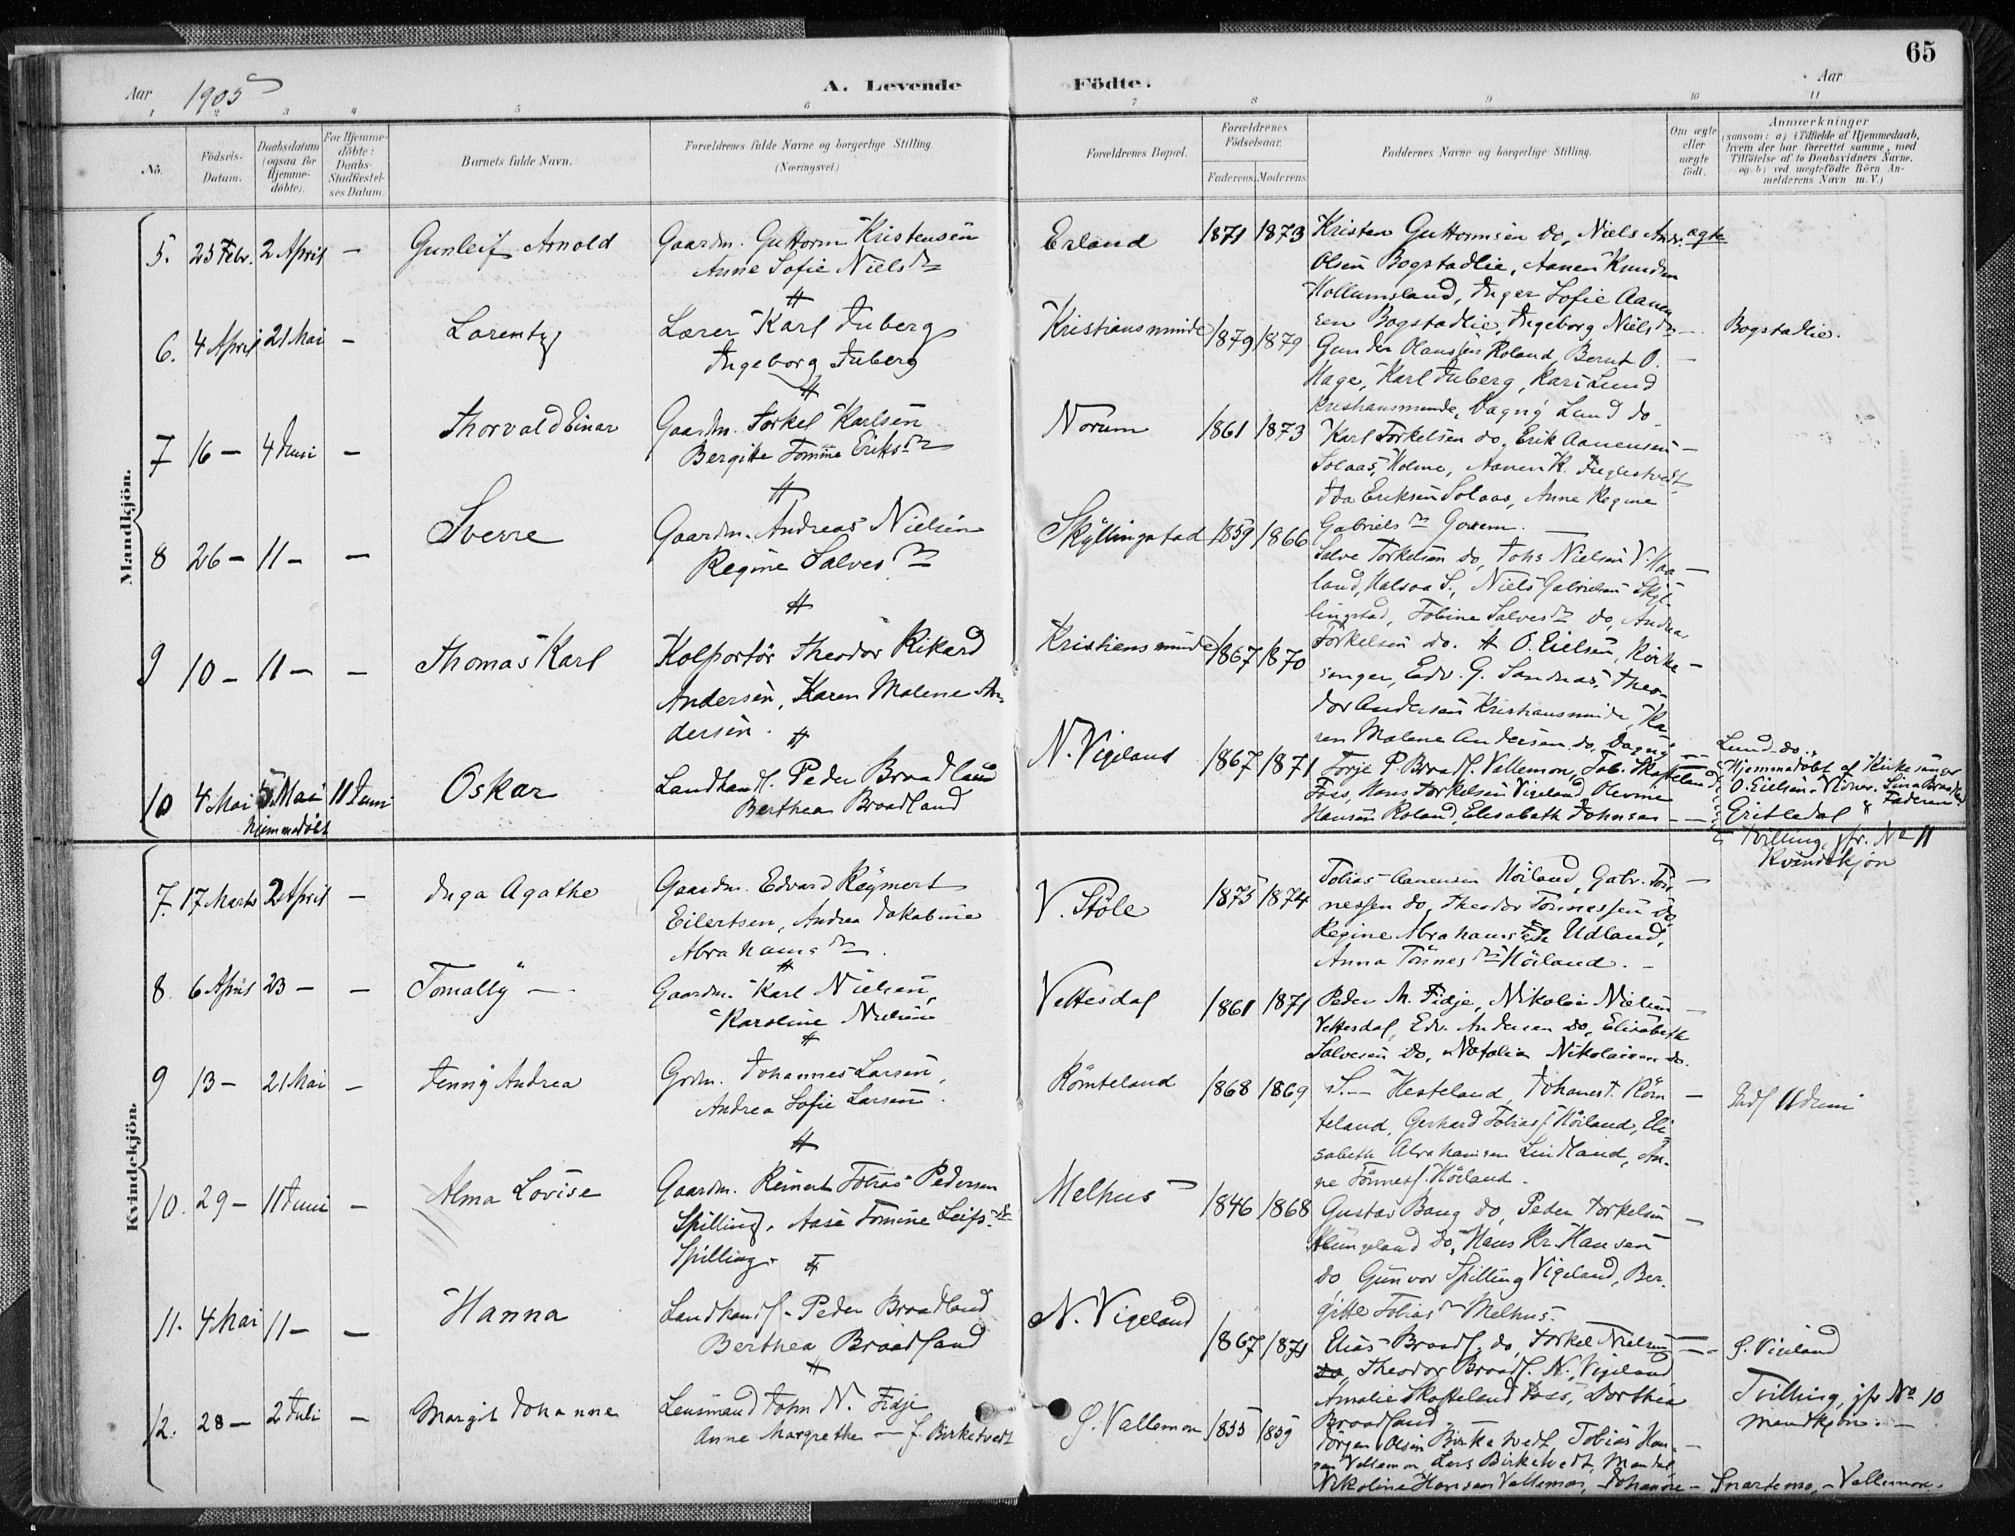 65
Aar 1905
A. Levende Födte.
Aar
1 2 3 4 5 6 7 8 9 10 11
No.
Födsels-
Datum.
Daabsdatum
(ogsaa for
Hjemme-
döbte).
For Hjemme-
döbte:
Daabs-
Stadfæstel-
ses Datum.
Barnets fulde Navn.
Forældrenes fulde Navne og borgerlige Stilling.
(Næringsvei.)
Forældrenes Bopæl.
Forældrenes
Födselsaar.
Faderens. Moderens.
Faddernes Navne og borgerlige Stilling.
Om ægte
eller
uægte
födt.
Anmærkninger
(saasom: a) i Tilfælde af Hjemmedaab,
hvem der har forrettet samme, med
Tilföielse af to Daabsvidners Navne.
og b) ved uægtefödte Börn An-
melderens Navn m. V.)
Mandkjön.
5. 25 Febr. 2 April — Gunleif Arnold
Gaardm. Guttorm Kristensen
Anne Sofie Nielsdr
Erland 1871 1873
Kristen Guttormsen do, Niels Andr. ægte
Olsen Bogstadlie, Aanen Knudsen
Hollumsland, Inger Sofie Aanen
sen Bogstadlie, Ingeborg Nielsdr — Bogstadlie.
6. 4 April 21 Mai — Lorentz
Lærer Karl Tuberg
Ingeborg Tuberg
Kristiansminde 1879 1879
Gunder Olaussen Roland, Bernt O. —
Hage, Karl Tuberg, Kari Lund
Kristiansminde, Dagny Lund do
7 16 — 4 Juni — Thorvald Einar
Gaardm. Torkel Karlsen
Bergitte Tomine Eriksdr
Norum 1861 1873
Karl Torkelsen do, Erik Aanensen —
Solaas, Holme, Aanen K. Fuglestvedt,
Ida Eriksen Solaas, Anne Regine
Gabrielsdr
8 26 — 11 — — Sverre
Gaardm. Andreas Nielsen
Regine Salvesdr
Skyllingstad 1859 1866
Salve Torkelsen do, Johs Nielsen V. Haa —
land, Halsaa S., Niels Gabrielsen Skyl
lingstad, Tobine Salvesdr do, Andreas
Torkelsen do.
9 10 — 11 — — Thomas Karl
Kolportör Theodor Rikard
Andersen, Karen Malene An-
dersen.
Kristiansminde 1867 1870
O. Eielsen, Kirke —
sanger, Edv. G. Sandnas, Theo-
dor Andersen Kristiansminde, Ka-
ren Malene Andersen do, Dagny — Lund do.
10 4 Mai 5 Mai 11 Juni Oskar
hjemmedöbt
Landhandl. Peder Broadland
Berthea Broadland
N. Vigeland 1867 1871
Torje P. Broadl. Vallemon, Tob. Skofteland
Foss, Hans Torkelsen Vigeland, Olevine
Hansen Roland, Elisabeth Johnsen —
Hjemmedöbt af Kirkesanger
O. Eielsen. Vidner. Sina Broadland
Gritledal " Faderen
Tvilling, jfr. No 11
Kvindekjön
Kvindekjön.
7. 17 Marts 2 April — Inga Agathe
Gaardm. Edvard Reymert
Eilertsen, Andrea Jakobine
Abrahamsdr.
V. Støle 1875 1874
Tobias Aanensen Höiland, Gabr. Tön —
nessen do, Theodor Tönnessen do
Regine Abrahamsdr Udland,
Anna Tönnesdr Höiland. —
8. 6 April 23 — — Tomally —
Gaardm. Karl Nielsen,
Karoline Nielsen
Vettesdal 1861 1871
Peder M. Fidje, Nikolai Nielsen —
Vettesdal, Edv. Andersen do, Elisabeth
Salvesen do, Natalia Nikolaisen do.
9 13 — 21 Mai — Jenny Andrea
Grdm. Johannes Larsen,
Andrea Sofie Larsen.
Römteland 1868 1869
Hesteland, Johanes T. Röm —
teland, Gerhard Tobiasf. Höiland, Eli
sabeth Abrahamsen Lindland, An-
ne Tönnesf. Höiland.
Indf 11 Juni
10. 29 — 11 Juni — Alma Lovise
Gaardm. Reinert Tobias Pedersen
Spilling, Aase Tomine Leifsdr
Spilling.
Melhus 1846 1868
Gustav Baug do, Peder Torkelsen —
do, Hans Kr. Hansen
do Gunvor Spilling Vigeland, Ber-
gitte Tobiasdr Melhus.
11. 4 Mai 11 — — Hanna
Landhandl. Peder Broadland
Berthea Broadland
N. Vigeland 1867 1871
Elias Broadl. do, Torkel Nielsen — S. Vigeland
Theodor Broadl. N. Vigeland
Amalie Skofteland Foss, Dorthea
Broadland.
Tvilling, jfr No 10
mandkjön. —
12. 28 — 2 Juli — Margit Johanne
Lensmand John N. Fidje
Anne Margrethe — f. Birketvedt
S. Vallemon 1855 1859
Jörgen Olsen Birketvedt, Tobias Han- —
sen Vallemon, Lars Birketvedt, Mandal,
Nikoline Hansen Vallemon, Johanne — Snartemo, — Vallemon.